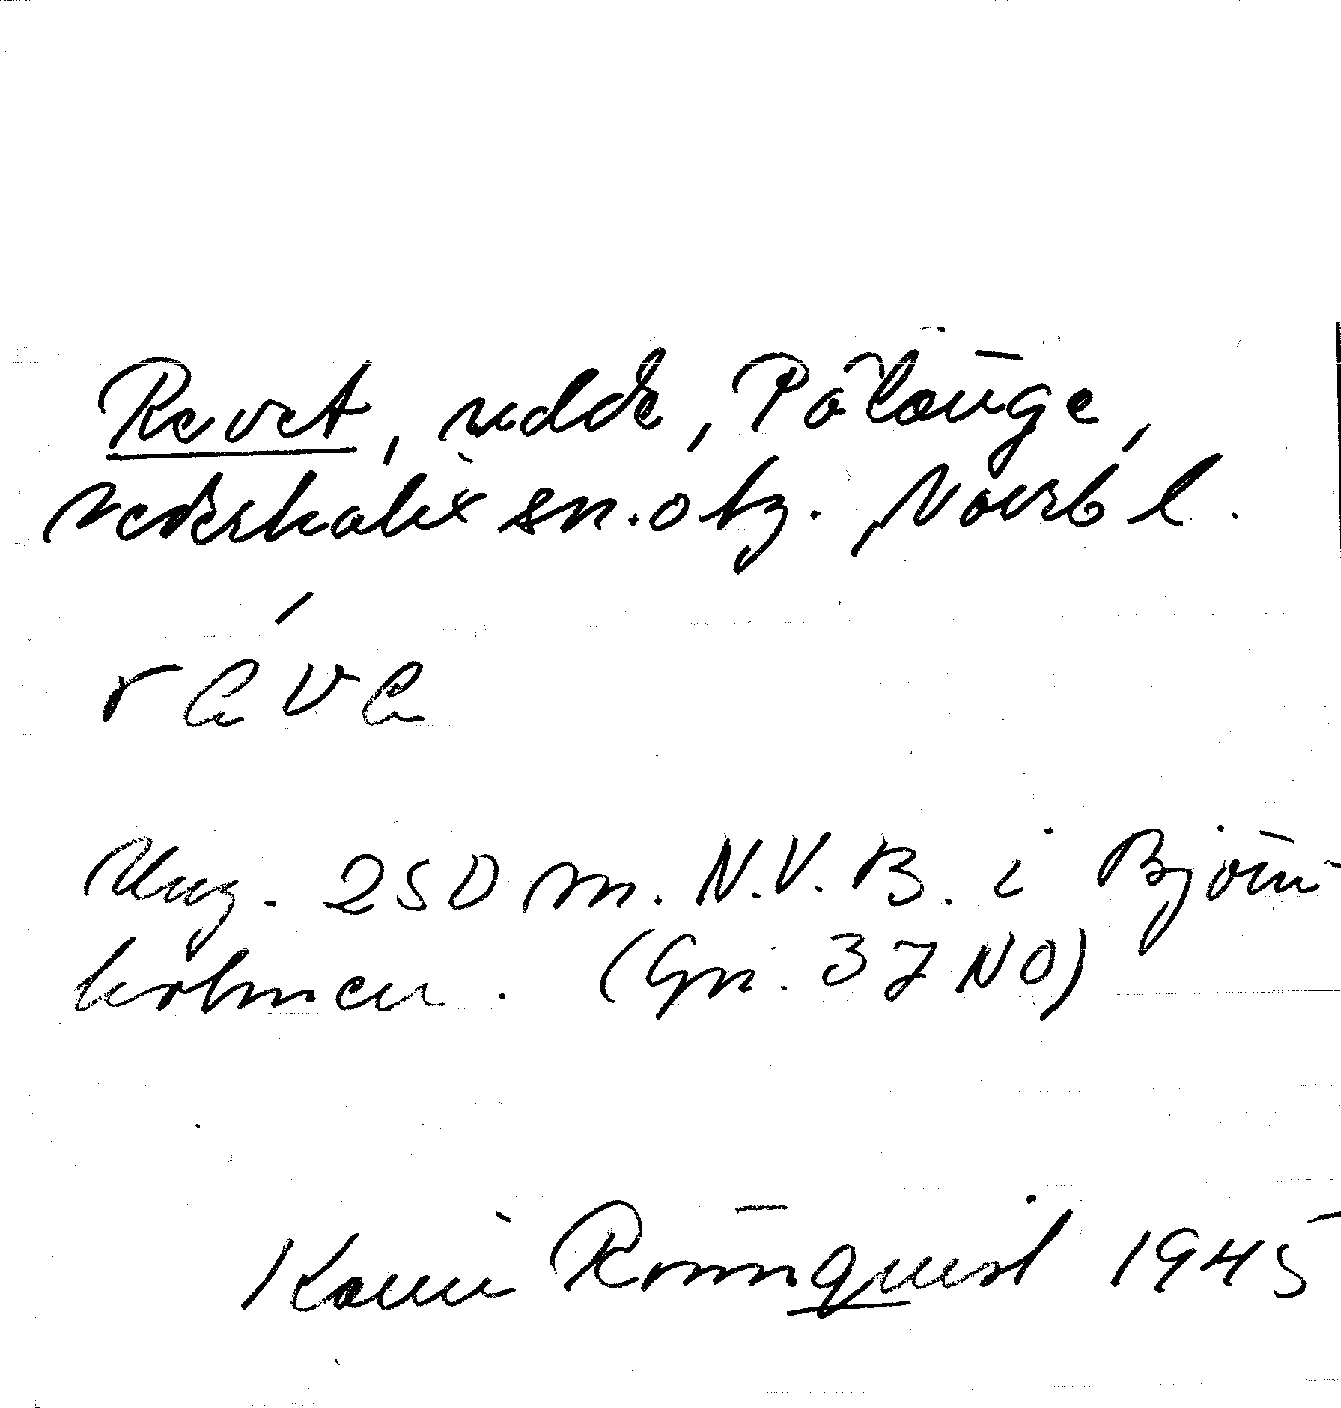 Revet, udde, Pålänge,
Nederkalix sn. o tg. Norrb l.
Ung. 250 m. N.V. B. i Björn-
holmen. (Gri. 37 NO)
Karin Rönnquist 1945